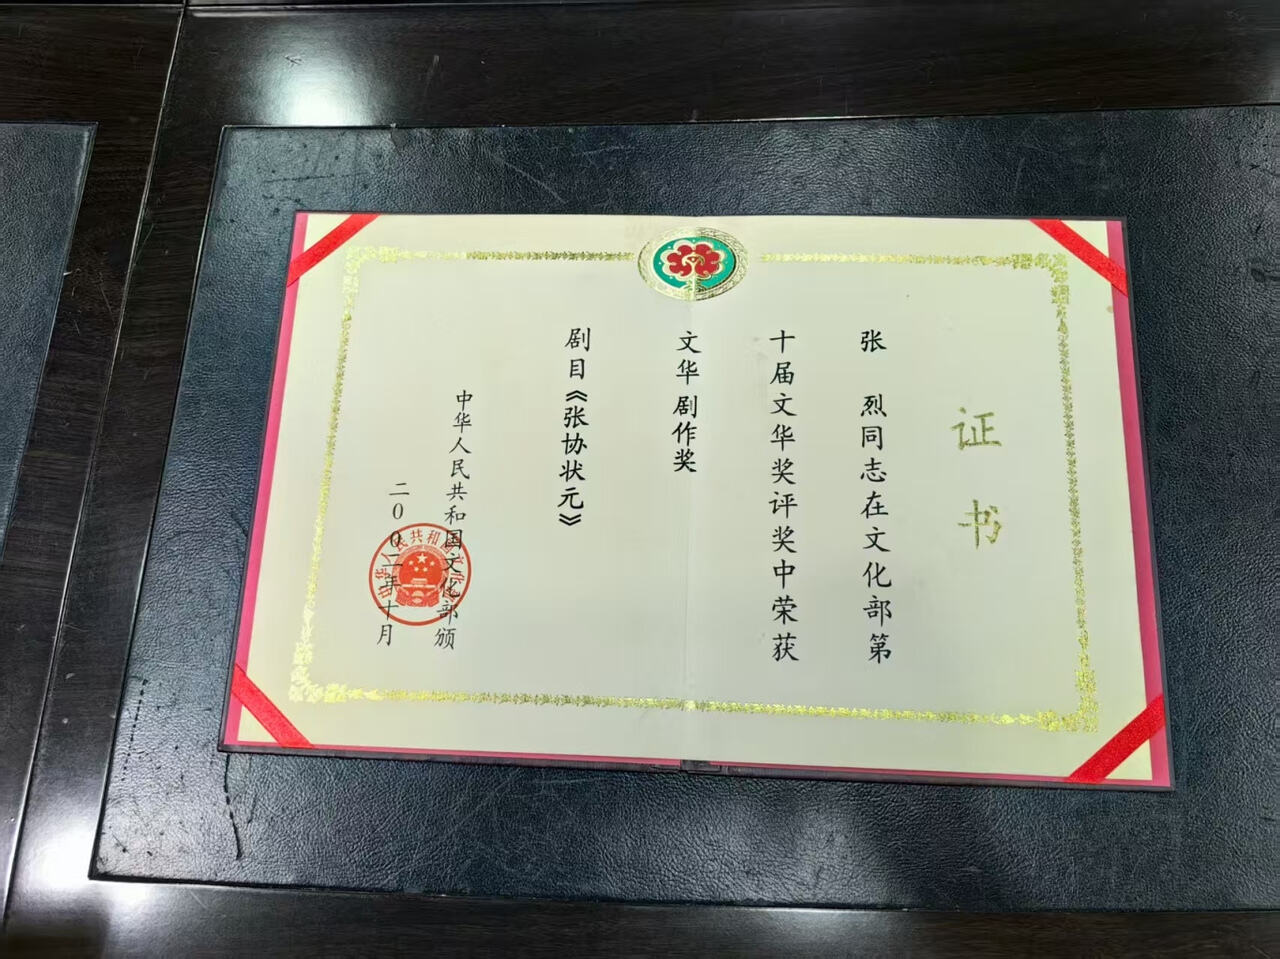 证书
张 烈同志在文化部第
十届文华奖评奖中荣获
文华剧作奖
剧目《张协状元》
中华人民共和国文化部颁
二00二年十月
中华人民共和国文化部